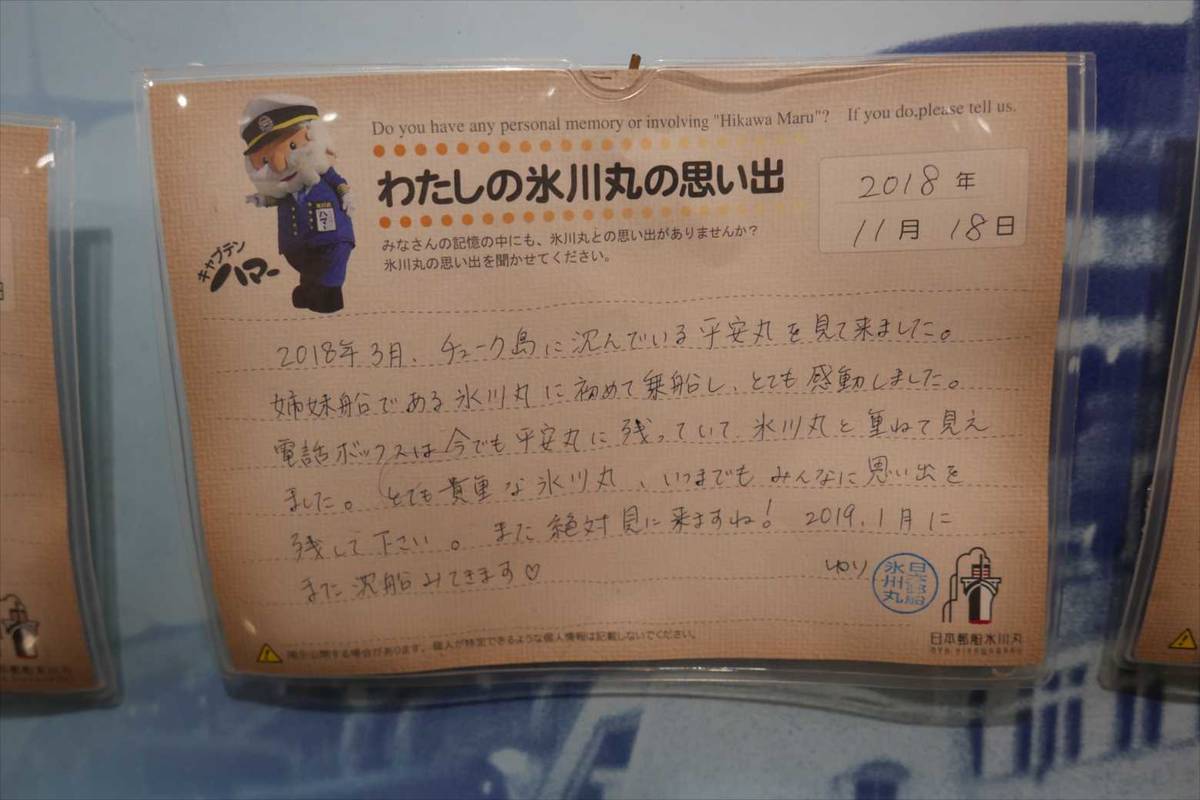 Do you have any personal memory or involving "Hikawa Maru"? If you do,please tell us.
わたしの氷川丸の思い出
みなさんの記憶の中にも、氷川丸との思い出がありませんか？
氷川丸の思い出を聞かせてください。
2018年
11月18日
キャプテン
ハマー
2018年3月、チューク島に沈んでいる平安丸を見て来ました。
姉妹船である氷川丸に初めて乗船し、とても感動しました。
電話ボックスは今でも平安丸に残っていて、氷川丸と重ねて見え
ました。とても貴重な氷川丸、いつまでもみんなに思い出を
残して下さい。また絶対見に来ますね！2019.1月に
また沈船みてきます♡
ゆり
日本郵船
氷川丸
日本郵船氷川丸
掲示公開する場合があります。個人が特定できるような個人情報は記載しないでください。
日